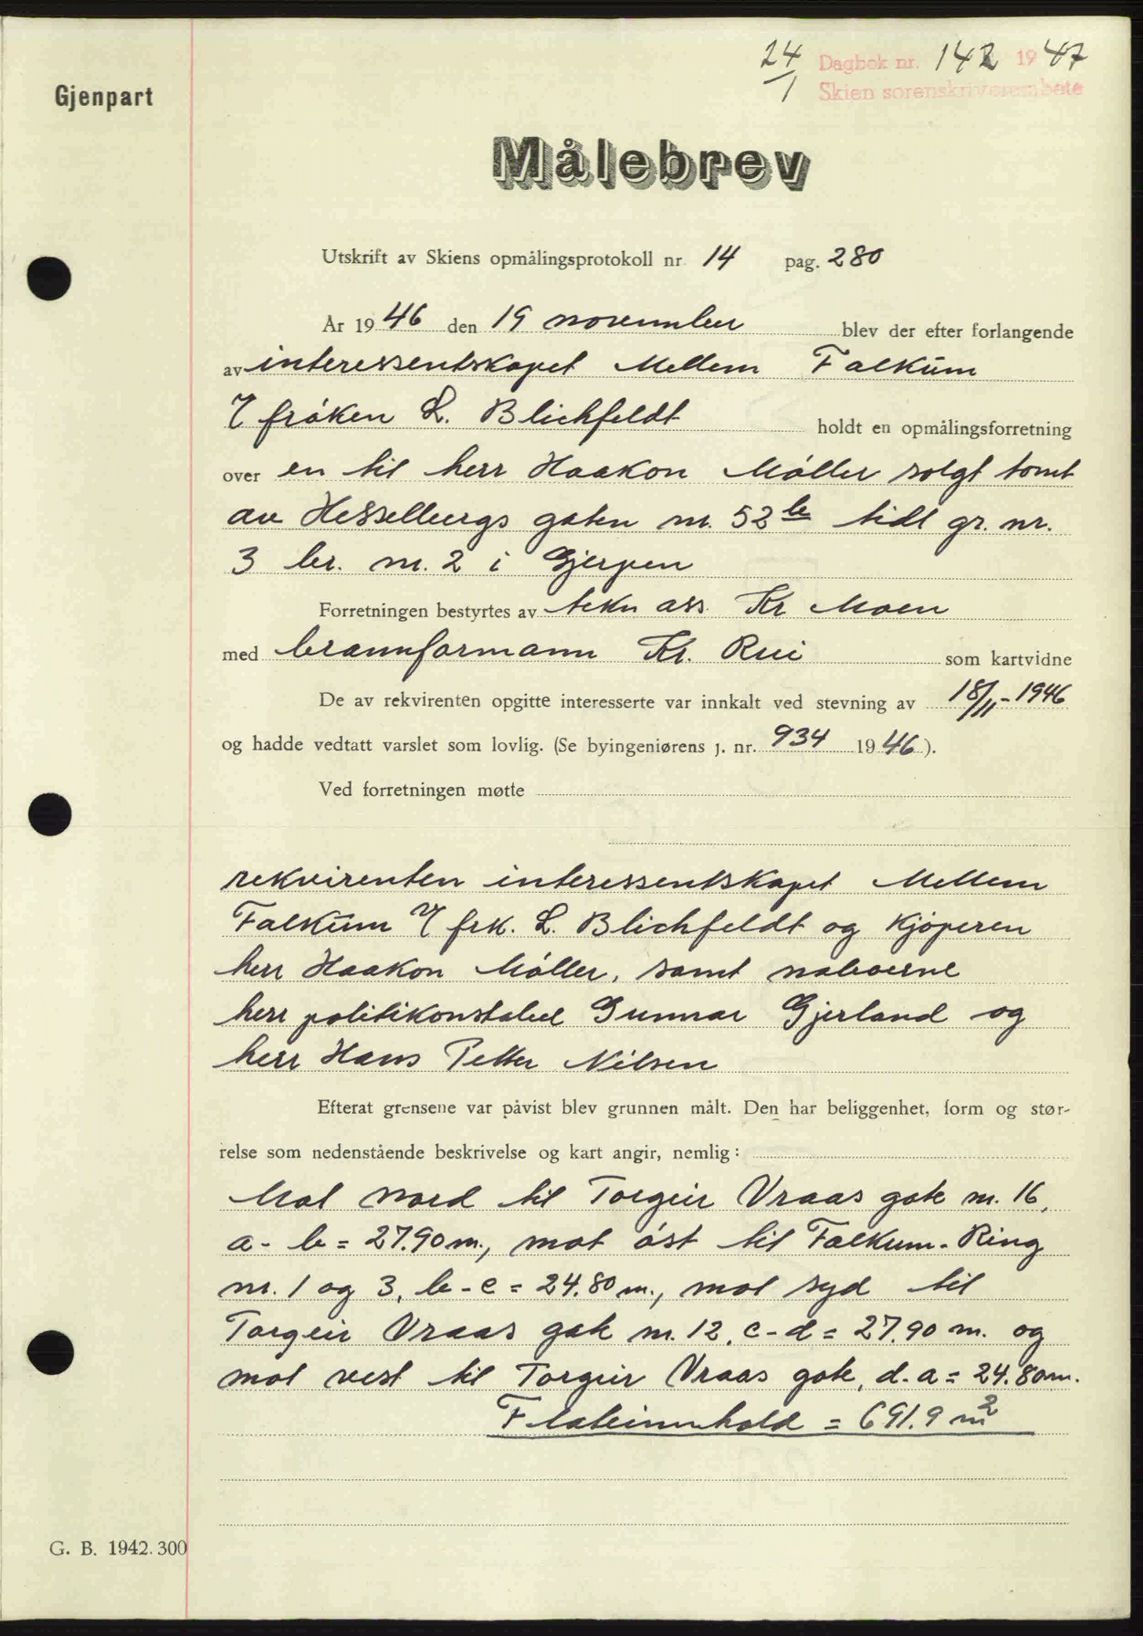 24/1 Dagbok nr. 142 1947
Skien sorenskriverembete
Gjenpart
Målebrev
Utskrift av Skiens opmålingsprotokoll nr 14 pag. 280
År 1946 den 19 november blev der efter forlangende
av interessentskapet Mellem Falkum
v/ frøken L. Blichfeldt holdt en opmålingsforretning
over en til herr Haakon Møller solgt tomt
av Hesselbergs gaten nr. 52b tidl gr. nr.
3 br. nr. 2 i Gjerpen
Forretningen bestyrtes av tekn ass. Kr Moen
med brannformann Kr. Rui som kartvidne
De av rekvirenten opgitte interesserte var innkalt ved stevning av 18/11-1946
og hadde vedtatt varslet som lovlig. (Se byingeniørens j. nr. 934 1946).
Ved forretningen møtte
rekvirenten interessentskapet Mellem
Falkum v/ frk. L. Blichfeldt og kjøperen
herr Haakon Møller, samt naboerne
herr politikonstabel Gunnar Gjerland og
herr Hans Petter Nilsen
Efterat grensene var påvist blev grunnen målt. Den har beliggenhet, form og stør-
relse som nedenstående beskrivelse og kart angir, nemlig:
Mot nord til Torgeir Vraas gate nr. 16,
a- b = 27.90 m., mot øst til Falkum-Ring
nr. 1 og 3, b-c = 24.80 m., mot syd til
Torgeir Vraas gate nr. 12, c-d = 27.90 m. og
mot vest til Torgeir Vraas gate, d-a = 24.80 m.
Flateinnhold = 691.9 m²
G. B. 1942. 300